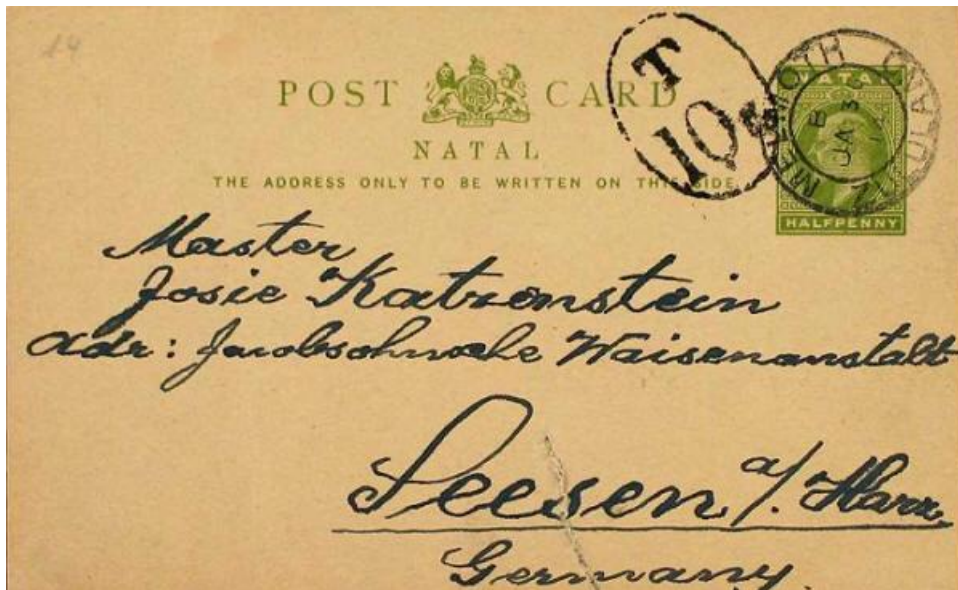 14
POST CARD
NATAL
THE ADDRESS ONLY TO BE WRITTEN ON THIS SIDE
T
10c
MELMOTH ZULULAND
B
JA 3
NATAL
HALFPENNY
Master
Josie Katzenstein
Adr: Jacobsohnsche Waisenanstalt
Seesen a/. Harz
Germany.